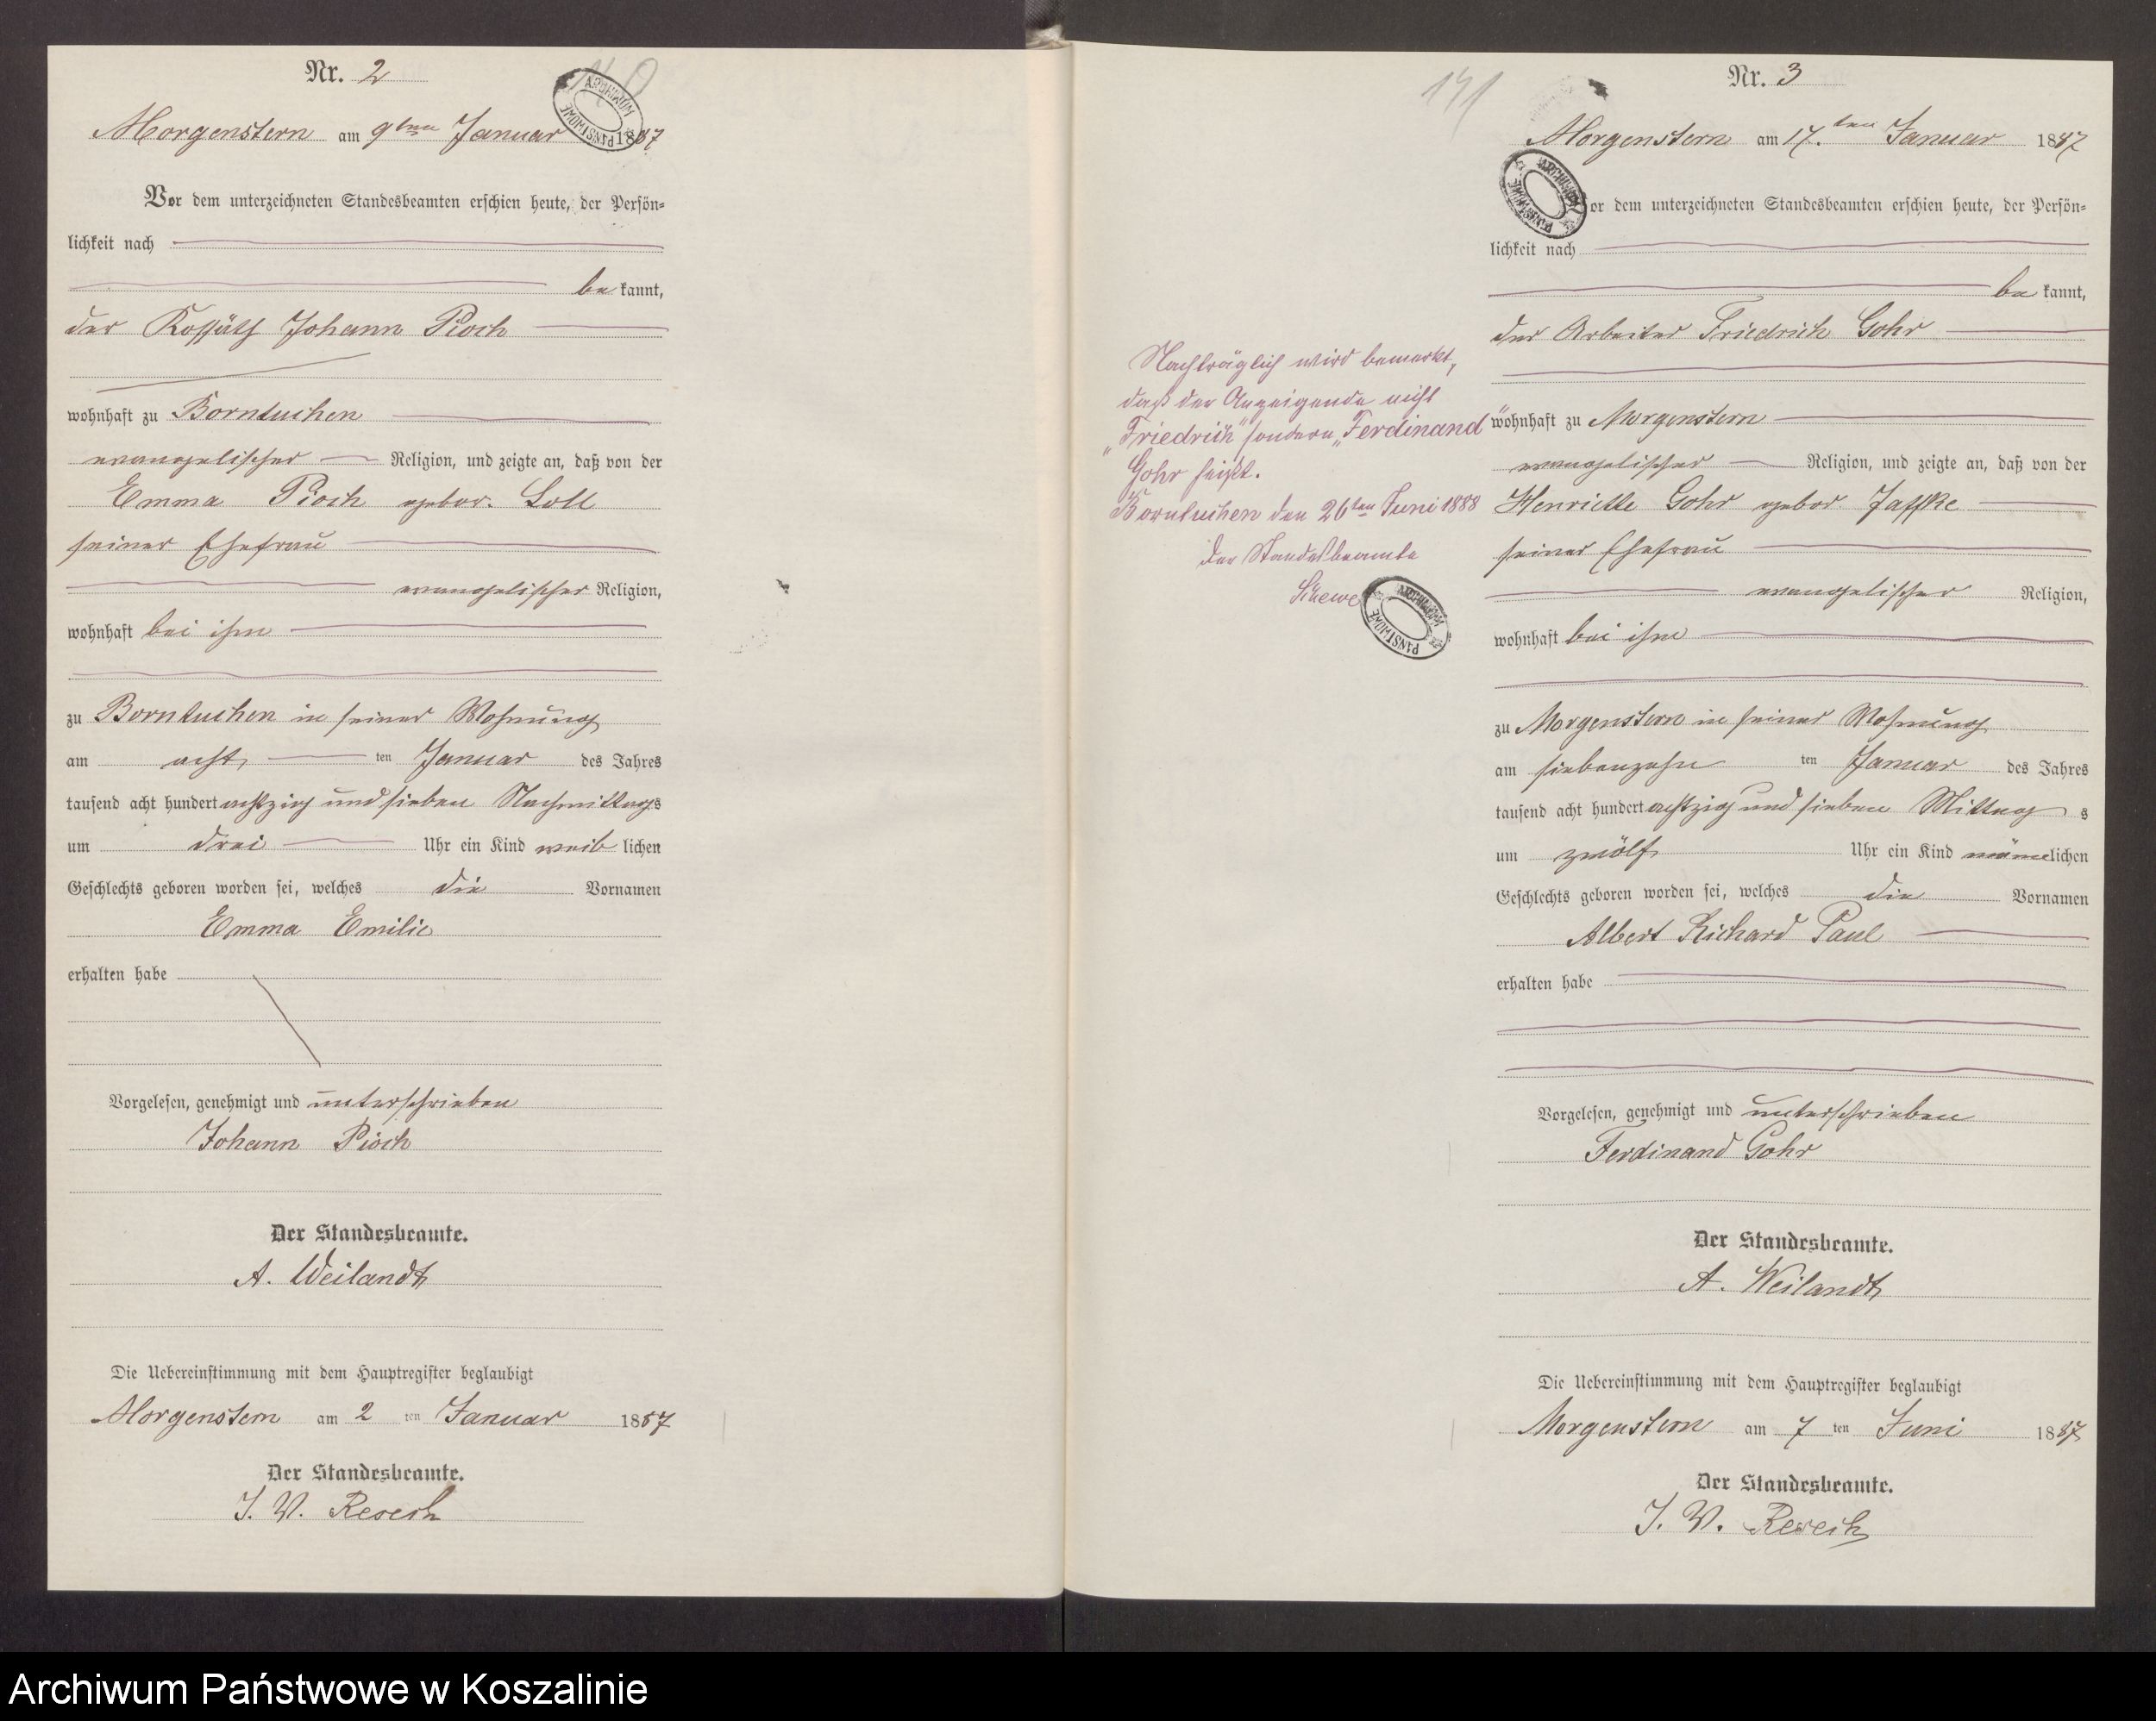 Nr. 2
Morgenstern am 9ten Januar 1887
Vor dem unterzeichneten Standesbeamten erschien heute, der Persön-
lichkeit nach
be kannt,
der Kossäth Johann Pioch
wohnhaft zu Borntuchen
evangelischer Religion, und zeigte an, daß von der
Emma Pioch gebor. Loll
seiner Ehefrau
evangelischer Religion,
wohnhaft bei ihm
zu Borntuchen in seiner Wohnung
am acht ten Januar des Jahres
tausend acht hundert achtzig und sieben Nachmittags
um drei Uhr ein Kind weib lichen
Geschlechts geboren worden sei, welches die Vornamen
Emma Emilie
erhalten habe
Vorgelesen, genehmigt und unterschrieben
Johann Pioch
Der Standesbeamte.
A. Weilandt
Die Uebereinstimmung mit dem Hauptregister beglaubigt
Morgenstern am 2 ten Januar 1887
Der Standesbeamte.
J. V. Resech
141
Nachträglich wird bemerkt,
daß der Anzeigende nicht
"Friedrich" sondern "Ferdinand"
Gohr heißt.
Borntuchen den 26ten Juni 1888
Der Standesbeamte
Schewe
ARCHIWUM PAŃSTWOWE
Nr. 3
Morgenstern am 17.ten Januar 1887
or dem unterzeichneten Standesbeamten erschien heute, der Persön-
lichkeit nach
be kannt,
der Arbeiter Friedrich Gohr
wohnhaft zu Morgenstern
evangelischer Religion, und zeigte an, daß von der
Henriette Gohr gebor. Jaffke
seiner Ehefrau
evangelischer Religion,
wohnhaft bei ihm
zu Morgenstern in seiner Wohnung
am siebenzehn ten Januar des Jahres
tausend acht hundert achtzig und sieben Mittag s
um zwölf Uhr ein Kind männlichen
Geschlechts geboren worden sei, welches die Vornamen
Albert Richard Paul
erhalten habe
Vorgelesen, genehmigt und unterschrieben
Ferdinand Gohr
Der Standesbeamte.
A. Weilandt
Die Uebereinstimmung mit dem Hauptregister beglaubigt
Morgenstern am 7 ten Juni 1887
Der Standesbeamte.
J. V. Resech
Archiwum Państwowe w Koszalinie